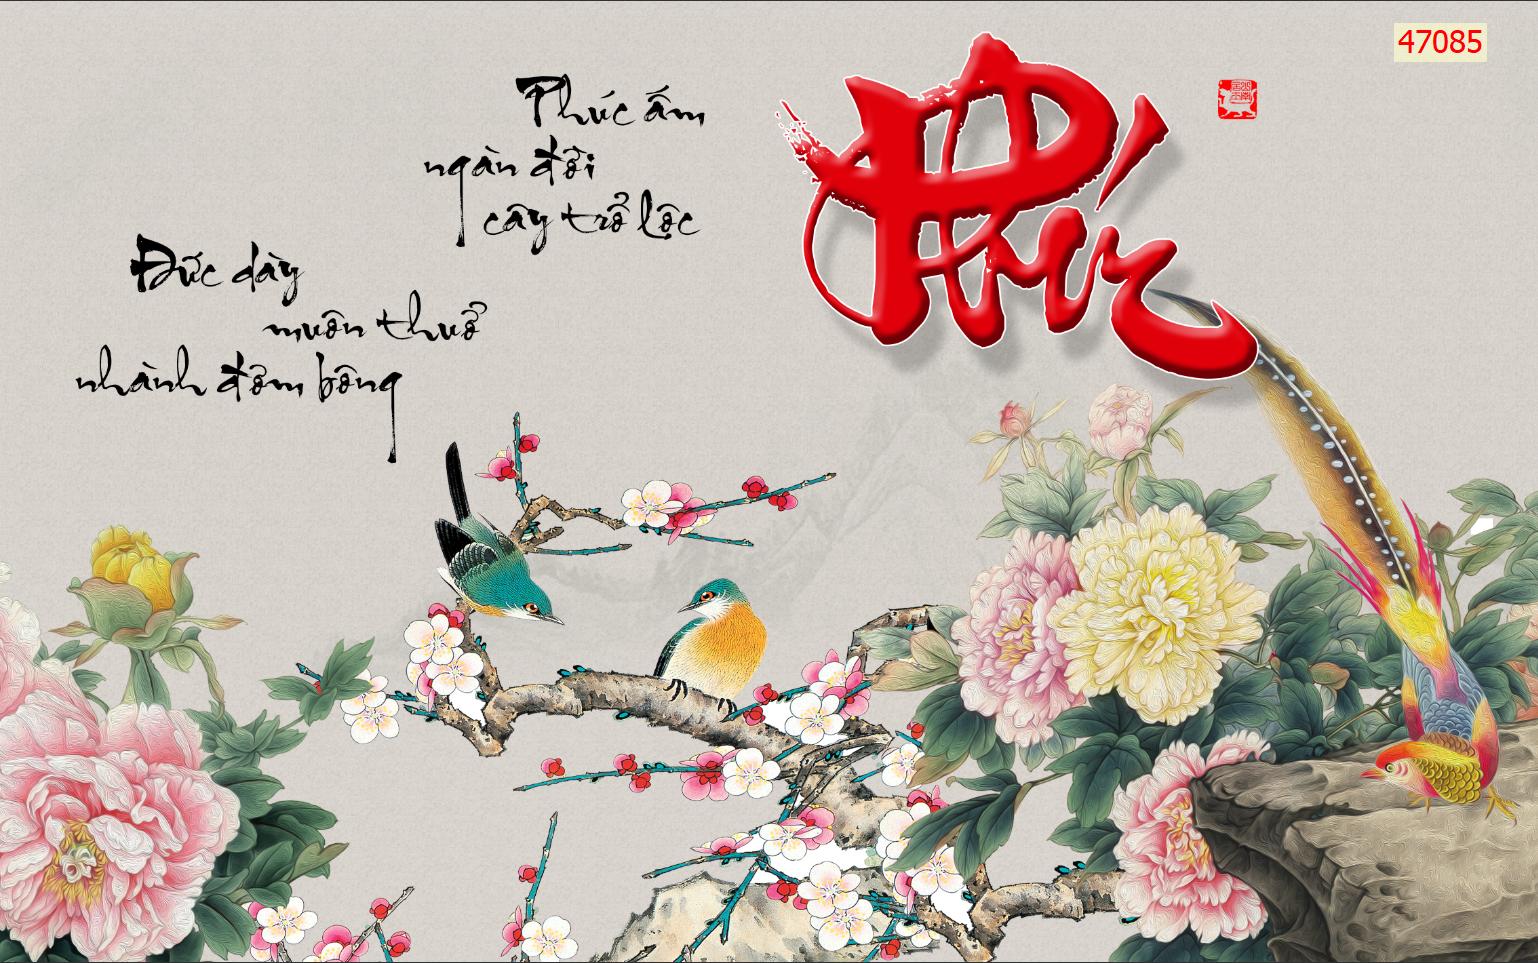 47085
Phúc
Phúc ấm
ngàn đời
cây trổ lộc
Đức dày
muôn thuở
nhành đơm bông